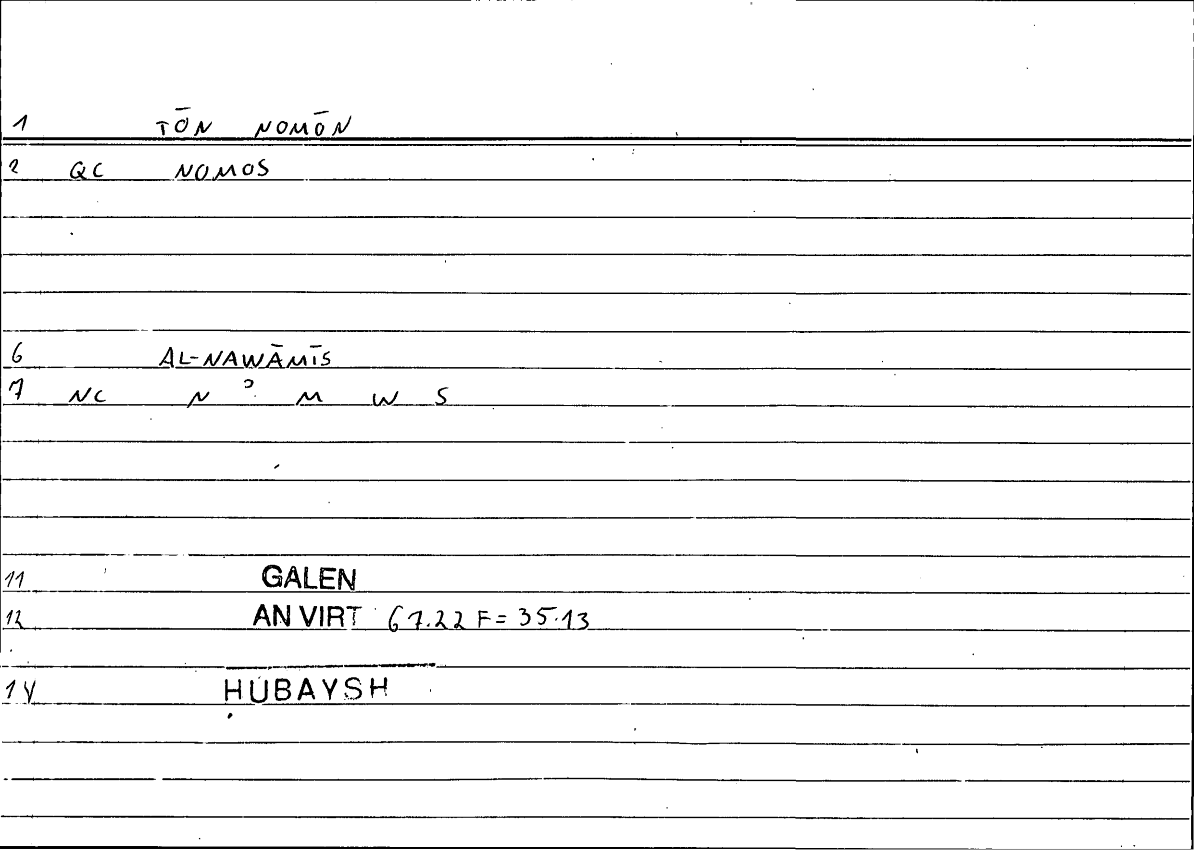 1 TŌN NOMŌN
2 QC NOMOS
6 AL-NAWĀMĪS
7 NC N ʾ M W S
11 GALEN
12 AN VIRT 67.22 F = 35.13
14 ḤUBAYSH